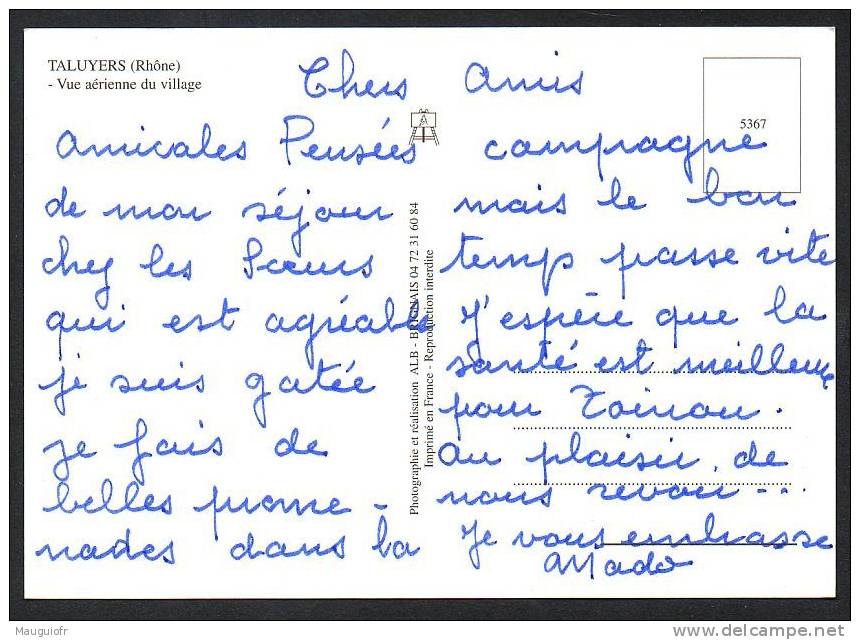 TALUYERS (Rhône)
- Vue aérienne du village
5367
Chers Amis
Amicales Pensées
de mon séjour
chez les Soeurs
qui est agréable
je suis gatée
je fais de
belles prome -
nades dans la
campagne
mais le bon
temps passe vite
J'espère que la
santé est meilleure
pour Toinou.
Au plaisir de
nous revoir...
Je vous embrasse
Mado
Photographie et réalisation ALB - BRIGNAIS 04 72 31 60 84
Imprimé en France - Reproduction interdite
Mauguiofr
delcampe.net